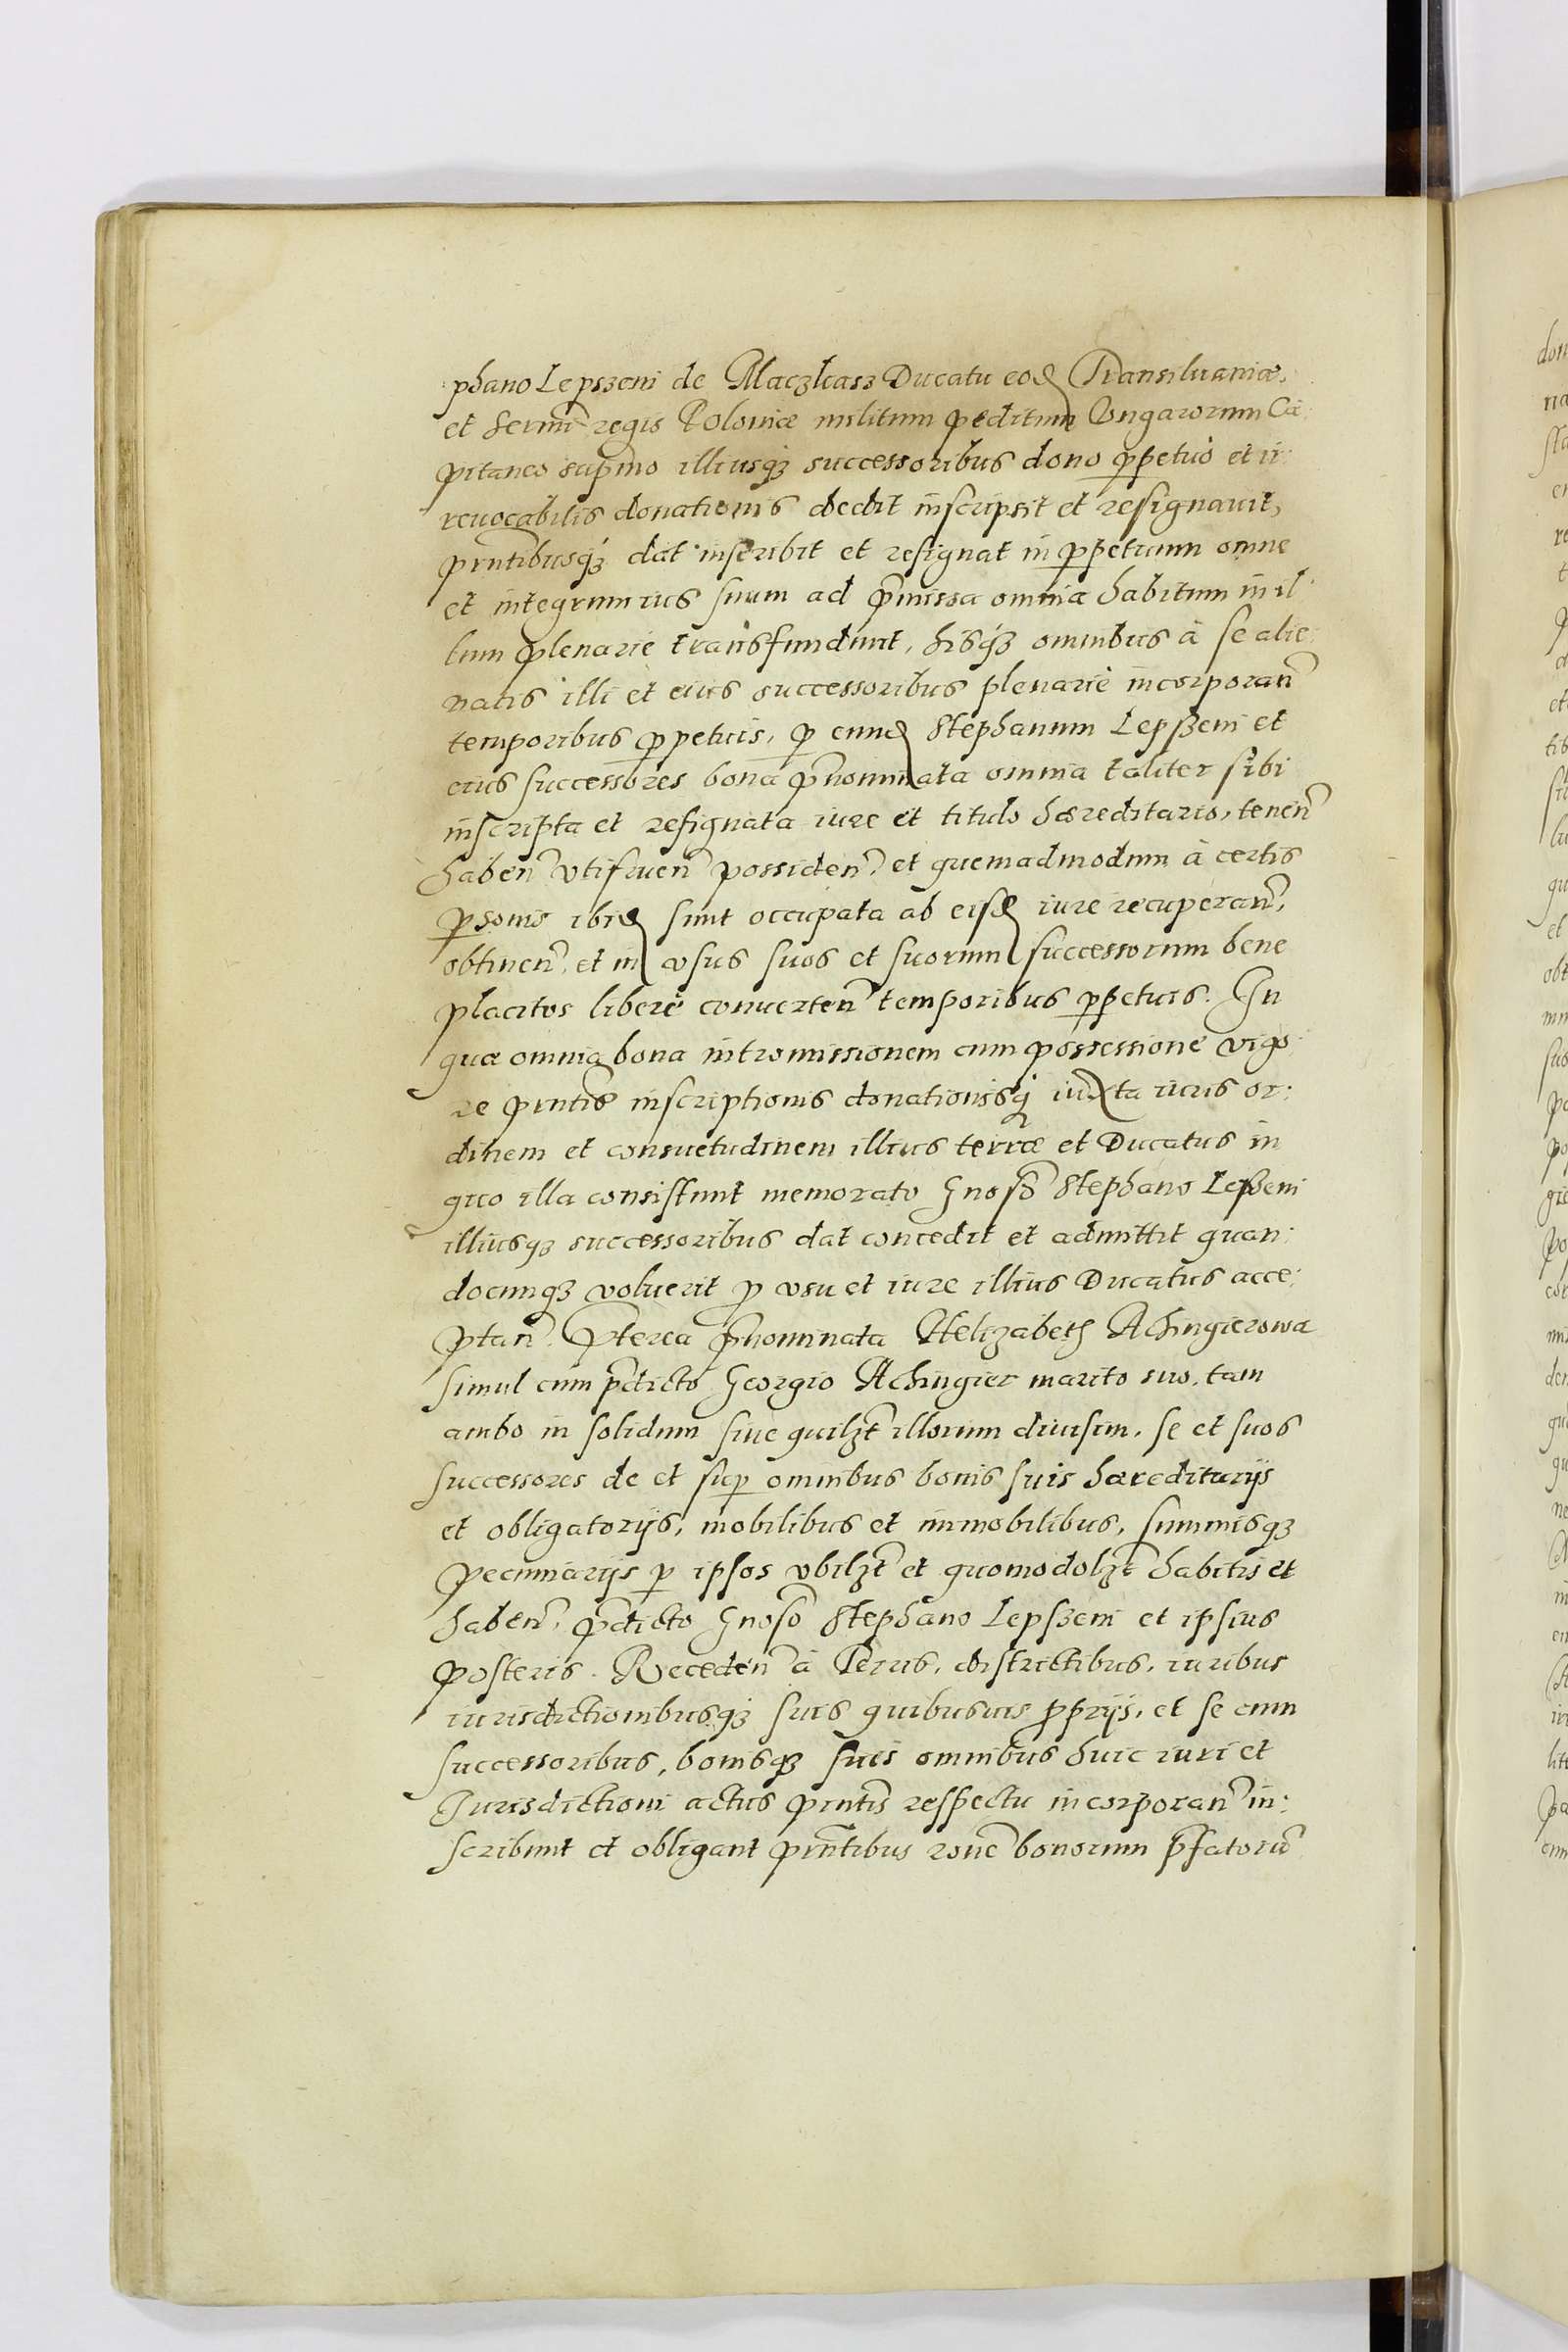 phano Lepszeni de Maczkasz Ducatu eod Transiluaniæ,
et Sermi regis Poloniæ militum peditum Vngarorum Ca:
pitaneo supmo illiusq3 successoribus dono ppetuò et ir:
reuocabilis donationis dedit inscripsit et resignauit,
pntibusq3 dat inscribit et resignat in ppetuum omne
et integrum ius suum ad pmissa omnia habitum in il:
lum plenarie transfundunt, hisq3 omnibus à se alie:
natis illi et eius successoribus plenariè incorporan
temporibus ppetuis, p eund Stephanum Lepszeni et
eius successores bona pnominata omnia taliter sibi
inscripta et resignata iure et titulo hæreditario, tenen
haben vtifruen possiden, et quemadmodum à certis
psonis ibid sunt occupata ab eisd iure recuperan,
obtinen, et in vsus suos et suorum successorum bene
placitos liberè conuerten temporibus ppetuis. In
quæ omnia bona intromissionem cum possessione vigo:
re pntis inscriptionis donationisq iuxta iuris or:
dinem et consuetudinem illius terræ et Ducatus in
quo illa consistunt memorato Gnoso Stephano Lepszeni
illiusq3 successoribus dat concedit et admittit quan:
documq3 voluerit p vsu et iure illius Ducatus acce:
ptan. Pterea pnominata Helizabeth Achingierowa
simul cum pdicto Georgio Achingier marito suo, tam
ambo in solidum siue quilzt illorum diuisim, se et suos
successores de et sup omnibus bonis suis hæreditarijs
et obligatorijs, mobilibus et immobilibus, summisq3
pecuniarijs p ipsos vbilzt et quomodolzt habitis et
haben, pdicto Gnoso Stephano Lepszeni et ipsius
posteris. Receden à Terris, districtibus, iuribus
iurisdictionibusq3 suis quibusuis pprijs, et se cum
successoribus, bonisq3 suis omnibus huic iuri et
Jurisdictioni actus pntis respectu incorporan in:
scribunt et obligant pntibus rone bonorum pfatoru